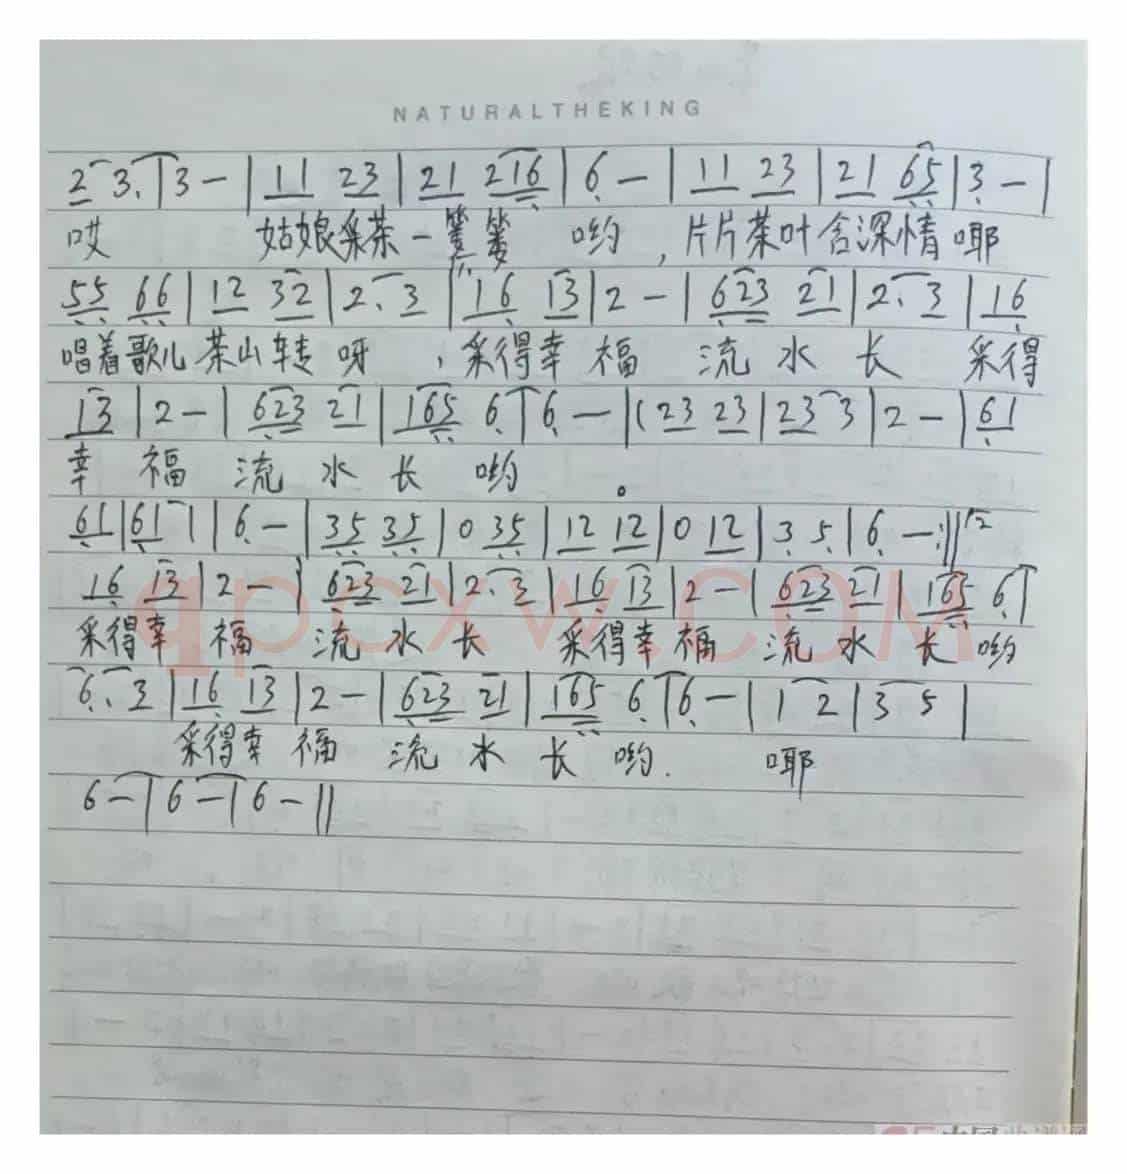 NATURALTHEKING
2 3. | 3 — | 11 23 | 21 216 | 6 — | 11 23 | 21 65 | 3 — |
哎 姑娘采茶一篓篓 哟 , 片片茶叶含深情 耶
55 66 | 12 32 | 2. 3 | 16 13 | 2 — | 623 21 | 2. 3 | 16
唱着歌儿 茶山转 呀 , 采得幸 福 流 水 长 采得
13 | 2 — | 623 21 | 165 6 | 6 — | (23 23 | 23 3 | 2 — | 61
幸 福 流 水 长 哟 。
61 | 61 1 | 6 — | 35 35 | 0 35 | 12 12 | 0 12 | 3 5 | 6 — :||
16 13 | 2 — | 623 21 | 2. 3 | 16 13 | 2 — | 623 21 | 165 6 |
采得幸 福 流 水 长 采得幸 福 流 水 长 哟
6. 3 | 16 13 | 2 — | 623 21 | 165 6 | 6 — | 1 2 | 3 5 |
采得幸 福 流 水 长 哟. 耶
6 — | 6 — | 6 — ||
qpcxw.COM